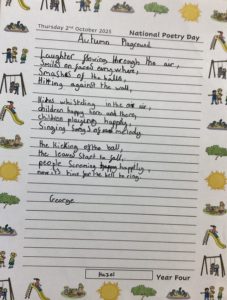 Thursday 2nd October 2025
National Poetry Day
Autumn Playground
Laughter flowing through the air,
Smiles on faces everywhere,
Smashes of the balls,
Hitting against the wall,
whistling in the air,
children happy here and there,
children playing happily,
Singing songs of melody.
the kicking of the ball,
the leaves start to fall,
people happily,
now it's time for the bell to ring.
George
Hazel
Year Four